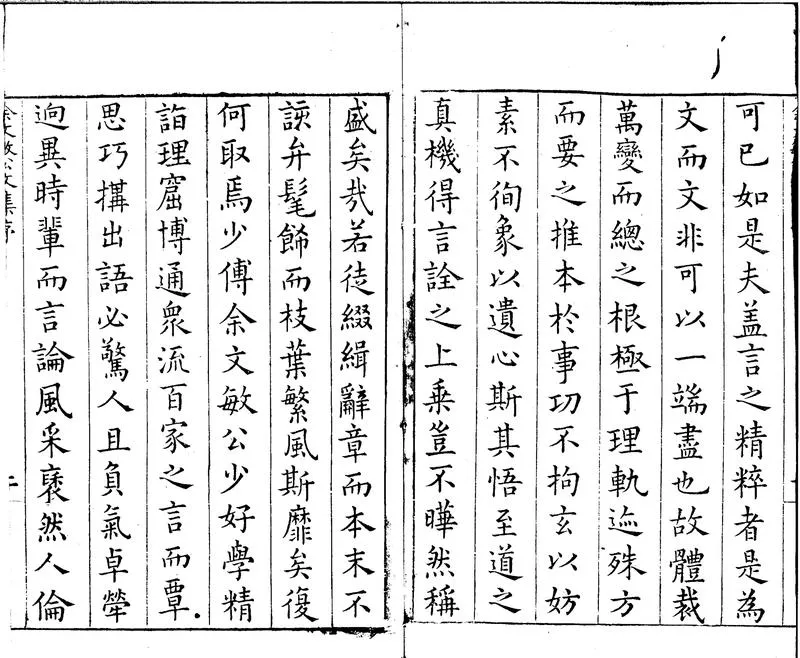 可已如是夫盖言之精粹者是為
文而文非可以一端盡也故體裁
萬變而總之根極于理軌迹殊方
而要之推本於事功不拘玄以妨
素不徇象以遺心斯其悟至道之
真機得言詮之上乗豈不曄然稱
盛矣㢤若徒綴緝辭章而本末不
該弁髦餙而枝葉繁風斯靡矣復
何取焉少傅余文敏公少好學精
詣理窟博通衆流百家之言而覃
思巧搆出語必驚人且負氣卓犖
逈異時輩而言論風采褎然人倫
余文敏公文集序